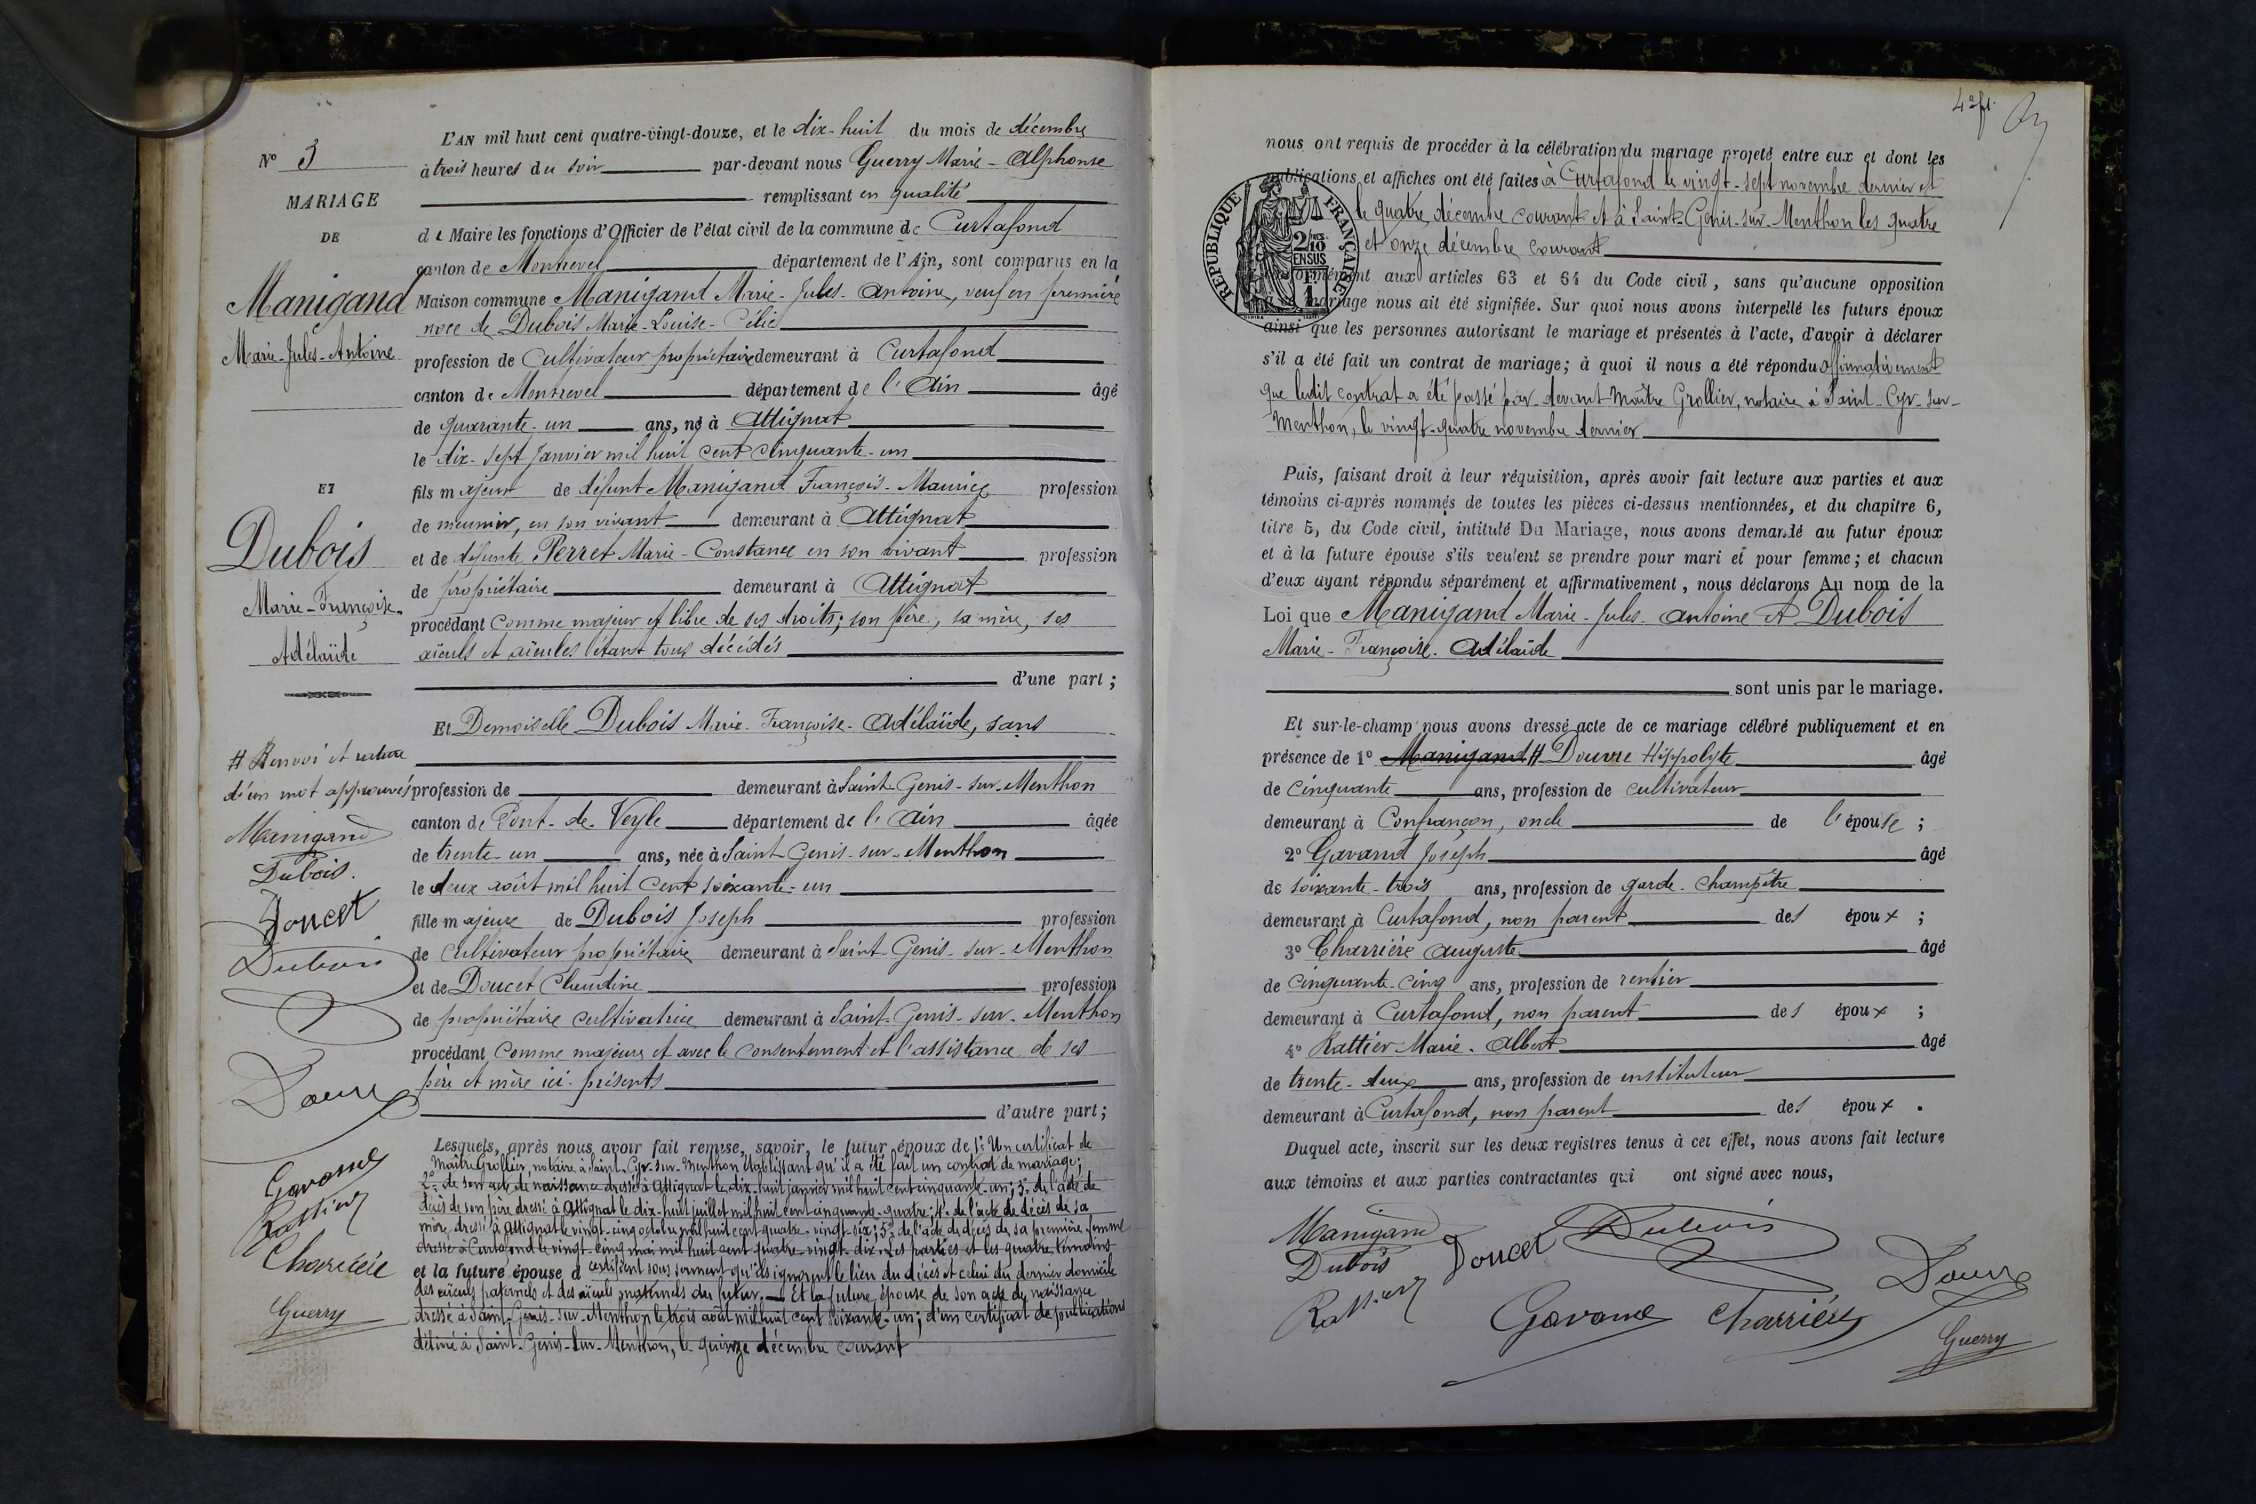 N° 3
MARIAGE
DE
Manigand
Marie-Jules-Antoine
ET
Dubois
Marie-Françoise-
Adélaïde
# Renvoi et rature
d'un mot approuvés
Manigand
Dubois.
Doucet
Dubois
Douvre
Gavand
Rattier
Charrière
Guerry
L'AN mil huit cent quatre-vingt-douze, et le dix-huit du mois de décembre
à trois heures du soir par-devant nous Guerry Marie-Alphonse
remplissant en qualité
de Maire les fonctions d'Officier de l'état civil de la commune de Curtafond
canton de Montrevel département de l'Ain, sont comparus en la
Maison commune Manigand Marie-Jules-Antoine, veuf en première
noce de Dubois Marie-Louise-Célie
profession de Cultivateur propriétaire demeurant à Curtafond
canton de Montrevel département de l'Ain âgé
de quarante-un ans, né à Attignat
le dix-sept janvier mil huit cent cinquante-un
fils majeur de défunt Manigand François-Maurice profession
de meunier, en son vivant demeurant à Attignat
et de défunte Perret Marie-Constance en son vivant profession
de propriétaire demeurant à Attignat
procédant comme majeur et libre de ses droits; son père, sa mère, ses
aïeuls et aïeules étant tous décédés
d'une part;
Et Demoiselle Dubois Marie-Françoise-Adélaïde, sans
profession de demeurant à Saint-Genis-sur-Menthon
canton de Pont-de-Veyle département de l'Ain âgée
de trente-un ans, née à Saint-Genis-sur-Menthon
le deux août mil huit cent soixante-un
fille majeure de Dubois Joseph profession
de Cultivateur propriétaire demeurant à Saint-Genis-sur-Menthon
et de Doucet Claudine profession
de propriétaire cultivatrice demeurant à Saint-Genis-sur-Menthon
procédant comme majeure et avec le consentement et l'assistance de ses
père et mère ici-présents
d'autre part;
Lesquels, après nous avoir fait remise, savoir, le futur époux de 1° Un certificat de
Maître Grollier, notaire à Saint-Cyr-sur-Menthon établissant qu'il a été fait un contrat de mariage;
2° de son acte de naissance dressé à Attignat le dix-huit janvier mil huit cent cinquante-un; 3° de l'acte de
décès de son père dressé à Attignat le dix-huit juillet mil huit cent cinquante-quatre; 4° de l'acte de décès de sa
mère, dressé à Attignat le vingt-cinq octobre mil huit cent quatre-vingt-six; 5° de l'acte de décès de sa première femme
dressé à Curtafond le vingt-cinq mai mil huit cent quatre-vingt-dix. Les parties et les quatre témoins
et la future épouse d certifient sous serment qu'ils ignorent le lieu du décès et celui du dernier domicile
des aïeuls paternels et des aïeuls maternels du futur. — Et la future épouse de son acte de naissance
dressé à Saint-Genis-sur-Menthon le trois août mil huit cent soixante-un; d'un certificat de publications
délivré à Saint-Genis-sur-Menthon, le quinze décembre courant
4e ft.
nous ont requis de procéder à la célébration du mariage projeté entre eux et dont les
publications et affiches ont été faites à Curtafond le vingt-sept novembre dernier et
le quatre décembre courant et à Saint-Genis-sur-Menthon les quatre
et onze décembre courant
REPUBLIQUE FRANÇAISE
2/10
EN SUS
conformément aux articles 63 et 64 du Code civil, sans qu'aucune opposition
mariage nous ait été signifiée. Sur quoi nous avons interpellé les futurs époux
ainsi que les personnes autorisant le mariage et présentés à l'acte, d'avoir à déclarer
s'il a été fait un contrat de mariage; à quoi il nous a été répondu affirmativement
que ledit contrat a été passé par-devant Maître Grollier, notaire à Saint-Cyr-sur-
Menthon, le vingt-quatre novembre dernier
Puis, faisant droit à leur réquisition, après avoir fait lecture aux parties et aux
témoins ci-après nommés de toutes les pièces ci-dessus mentionnées, et du chapitre 6,
titre 5, du Code civil, intitulé Du Mariage, nous avons demandé au futur époux
et à la future épouse s'ils veulent se prendre pour mari et pour femme; et chacun
d'eux ayant répondu séparément et affirmativement, nous déclarons Au nom de la
Loi que Manigand Marie-Jules-Antoine et Dubois
Marie-Françoise-Adélaïde
sont unis par le mariage.
Et sur-le-champ nous avons dressé acte de ce mariage célébré publiquement et en
présence de 1° Manigand # Douvre Hippolyte âgé
de cinquante ans, profession de cultivateur
demeurant à Confrançon, oncle de l'épouse;
2° Gavand Joseph âgé
de soixante-trois ans, profession de garde-champêtre
demeurant à Curtafond, non parent des époux;
3° Charrière Auguste âgé
de cinquante-cinq ans, profession de rentier
demeurant à Curtafond, non parent des époux;
4° Rattier Marie-Albert âgé
de trente-deux ans, profession de instituteur
demeurant à Curtafond, non parent des époux.
Duquel acte, inscrit sur les deux registres tenus à cet effet, nous avons fait lecture
aux témoins et aux parties contractantes qui ont signé avec nous,
Manigand
Dubois
Doucet
Dubois
Douvre
Rattier
Gavand
Charrière
Guerry